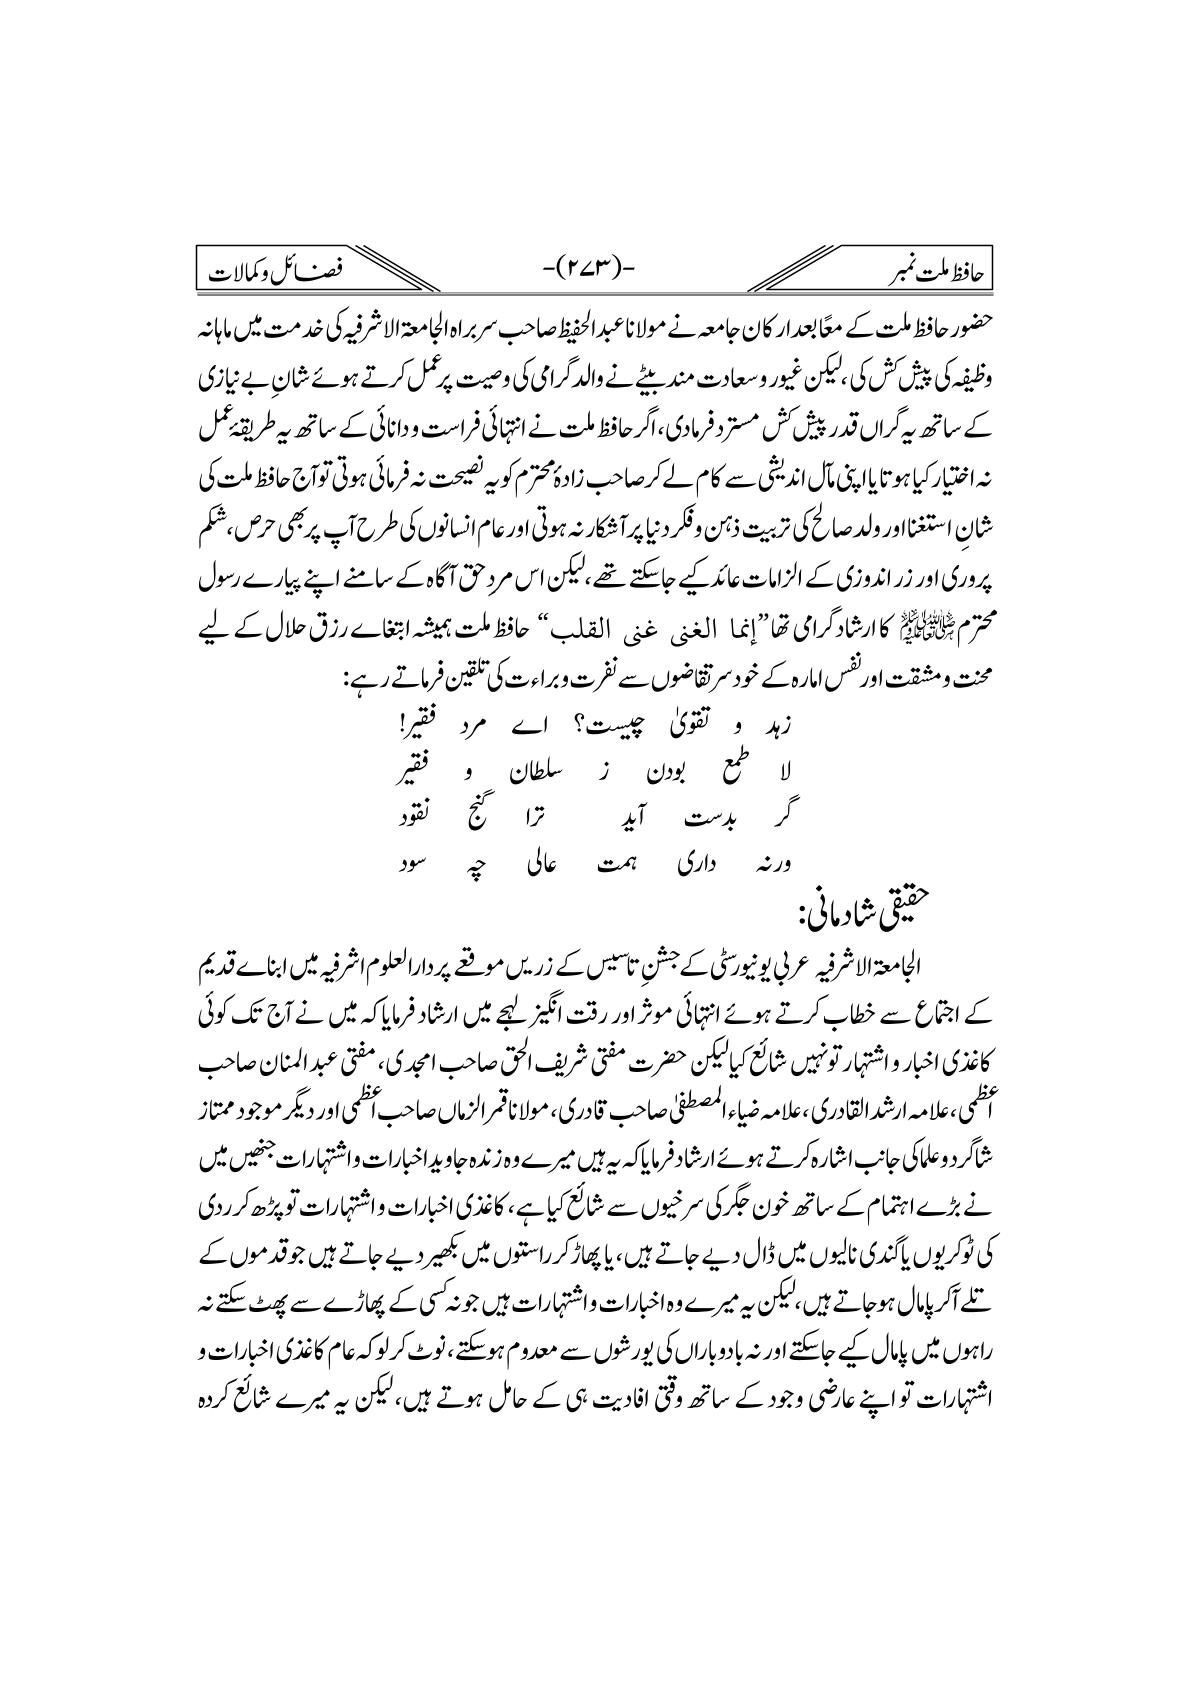 حافظ ملت نمبر -(۲۷۳)- فضائل و کمالات
حضور حافظ ملت کے معًا بعد ارکان جامعہ نے مولانا عبد الحفیظ صاحب سربراہ الجامعۃ الاشرفیہ کی خدمت میں ماہانہ
وظیفہ کی پیش کش کی، لیکن غیور و سعادت مند بیٹے نے والد گرامی کی وصیت پر عمل کرتے ہوئے شانِ بے نیازی
کے ساتھ یہ گراں قدر پیش کش مسترد فرمادی، اگر حافظ ملت نے انتہائی فراست و دانائی کے ساتھ یہ طریقۂ عمل
نہ اختیار کیا ہوتا یا اپنی مآل اندیشی سے کام لے کر صاحب زادۂ محترم کو یہ نصیحت نہ فرمائی ہوتی تو آج حافظ ملت کی
شانِ استغنا اور ولد صالح کی تربیت ذہن و فکر دنیا پر آشکار نہ ہوتی اور عام انسانوں کی طرح آپ پر بھی حرص، شکم
پروری اور زر اندوزی کے الزامات عائد کیے جاسکتے تھے، لیکن اس مرد حق آگاہ کے سامنے اپنے پیارے رسول
محترم ﷺ کا ارشاد گرامی تھا”إنما الغنی غنی القلب“ حافظ ملت ہمیشہ ابتغاے رزق حلال کے لیے
محنت و مشقت اور نفس امارہ کے خود سر تقاضوں سے نفرت و براءت کی تلقین فرماتے رہے:
زہد و تقویٰ چیست؟ اے مرد فقیر!
لا طمع بودن ز سلطان و فقیر
گر بدست آید ترا گنج نقود
ورنہ داری ہمت عالی چہ سود
حقیقی شادمانی:
الجامعۃ الاشرفیہ عربی یونیورسٹی کے جشنِ تاسیس کے زریں موقعے پر دارالعلوم اشرفیہ میں ابناے قدیم
کے اجتماع سے خطاب کرتے ہوئے انتہائی موثر اور رقت انگیز لہجے میں ارشاد فرمایا کہ میں نے آج تک کوئی
کاغذی اخبار و اشتہار تو نہیں شائع کیا لیکن حضرت مفتی شریف الحق صاحب امجدی، مفتی عبد المنان صاحب
اعظمی، علامہ ارشد القادری، علامہ ضیاء المصطفیٰ صاحب قادری، مولانا قمر الزماں صاحب اعظمی اور دیگر موجود ممتاز
شاگرد و علما کی جانب اشارہ کرتے ہوئے ارشاد فرمایا کہ یہ ہیں میرے وہ زندہ جاوید اخبارات و اشتہارات جنھیں میں
نے بڑے اہتمام کے ساتھ خون جگر کی سرخیوں سے شائع کیا ہے، کاغذی اخبارات و اشتہارات تو پڑھ کر ردی
کی ٹوکریوں یا گندی نالیوں میں ڈال دیے جاتے ہیں، یا پھاڑ کر راستوں میں بکھیر دیے جاتے ہیں جو قدموں کے
تلے آکر پامال ہوجاتے ہیں، لیکن یہ میرے وہ اخبارات و اشتہارات ہیں جو نہ کسی کے پھاڑے سے پھٹ سکتے نہ
راہوں میں پامال کیے جاسکتے اور نہ بادوباراں کی یورشوں سے معدوم ہوسکتے، نوٹ کرلو کہ عام کاغذی اخبارات و
اشتہارات تو اپنے عارضی وجود کے ساتھ وقتی افادیت ہی کے حامل ہوتے ہیں، لیکن یہ میرے شائع کردہ